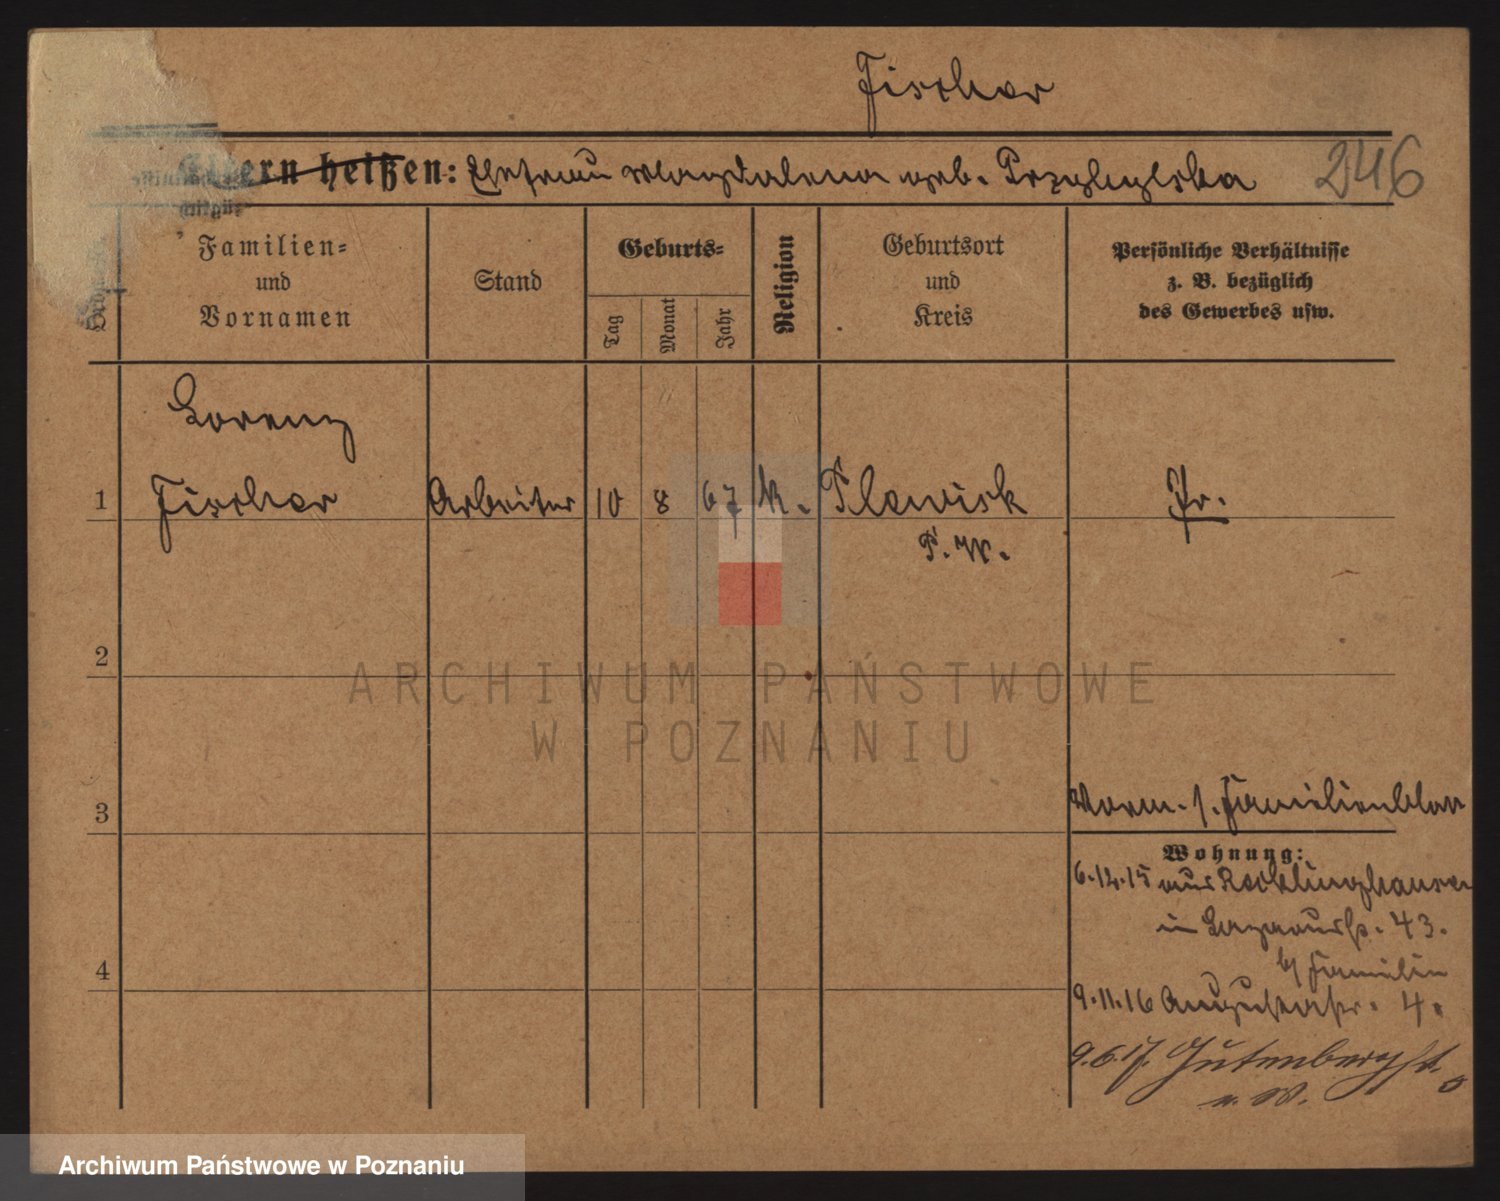 Fischer
Eltern heißen: Ehefrau Magdalena geb. Przybylska 246
Familien=
und
Vornamen
Stand
Geburts=
Tag
Monat
Jahr
Religion
Geburtsort
und
Kreis
Persönliche Verhältnisse
z. B. bezüglich
des Gewerbes usw.
Lorenz
1 Fischer Arbeiter 10 8 67 k. Plewisk Pr.
P. W.
2
3
Vorm. s. Familienblatt
Wohnung:
6.12.15 aus Recklinghausen
in Lazarusstr. 43.
4
b/ Familie
9.11.16 Augustastr. 4.
9.6.17. Gutenbergst.
n. W.
ARCHIWUM PAŃSTWOWE
W POZNANIU
Archiwum Państwowe w Poznaniu